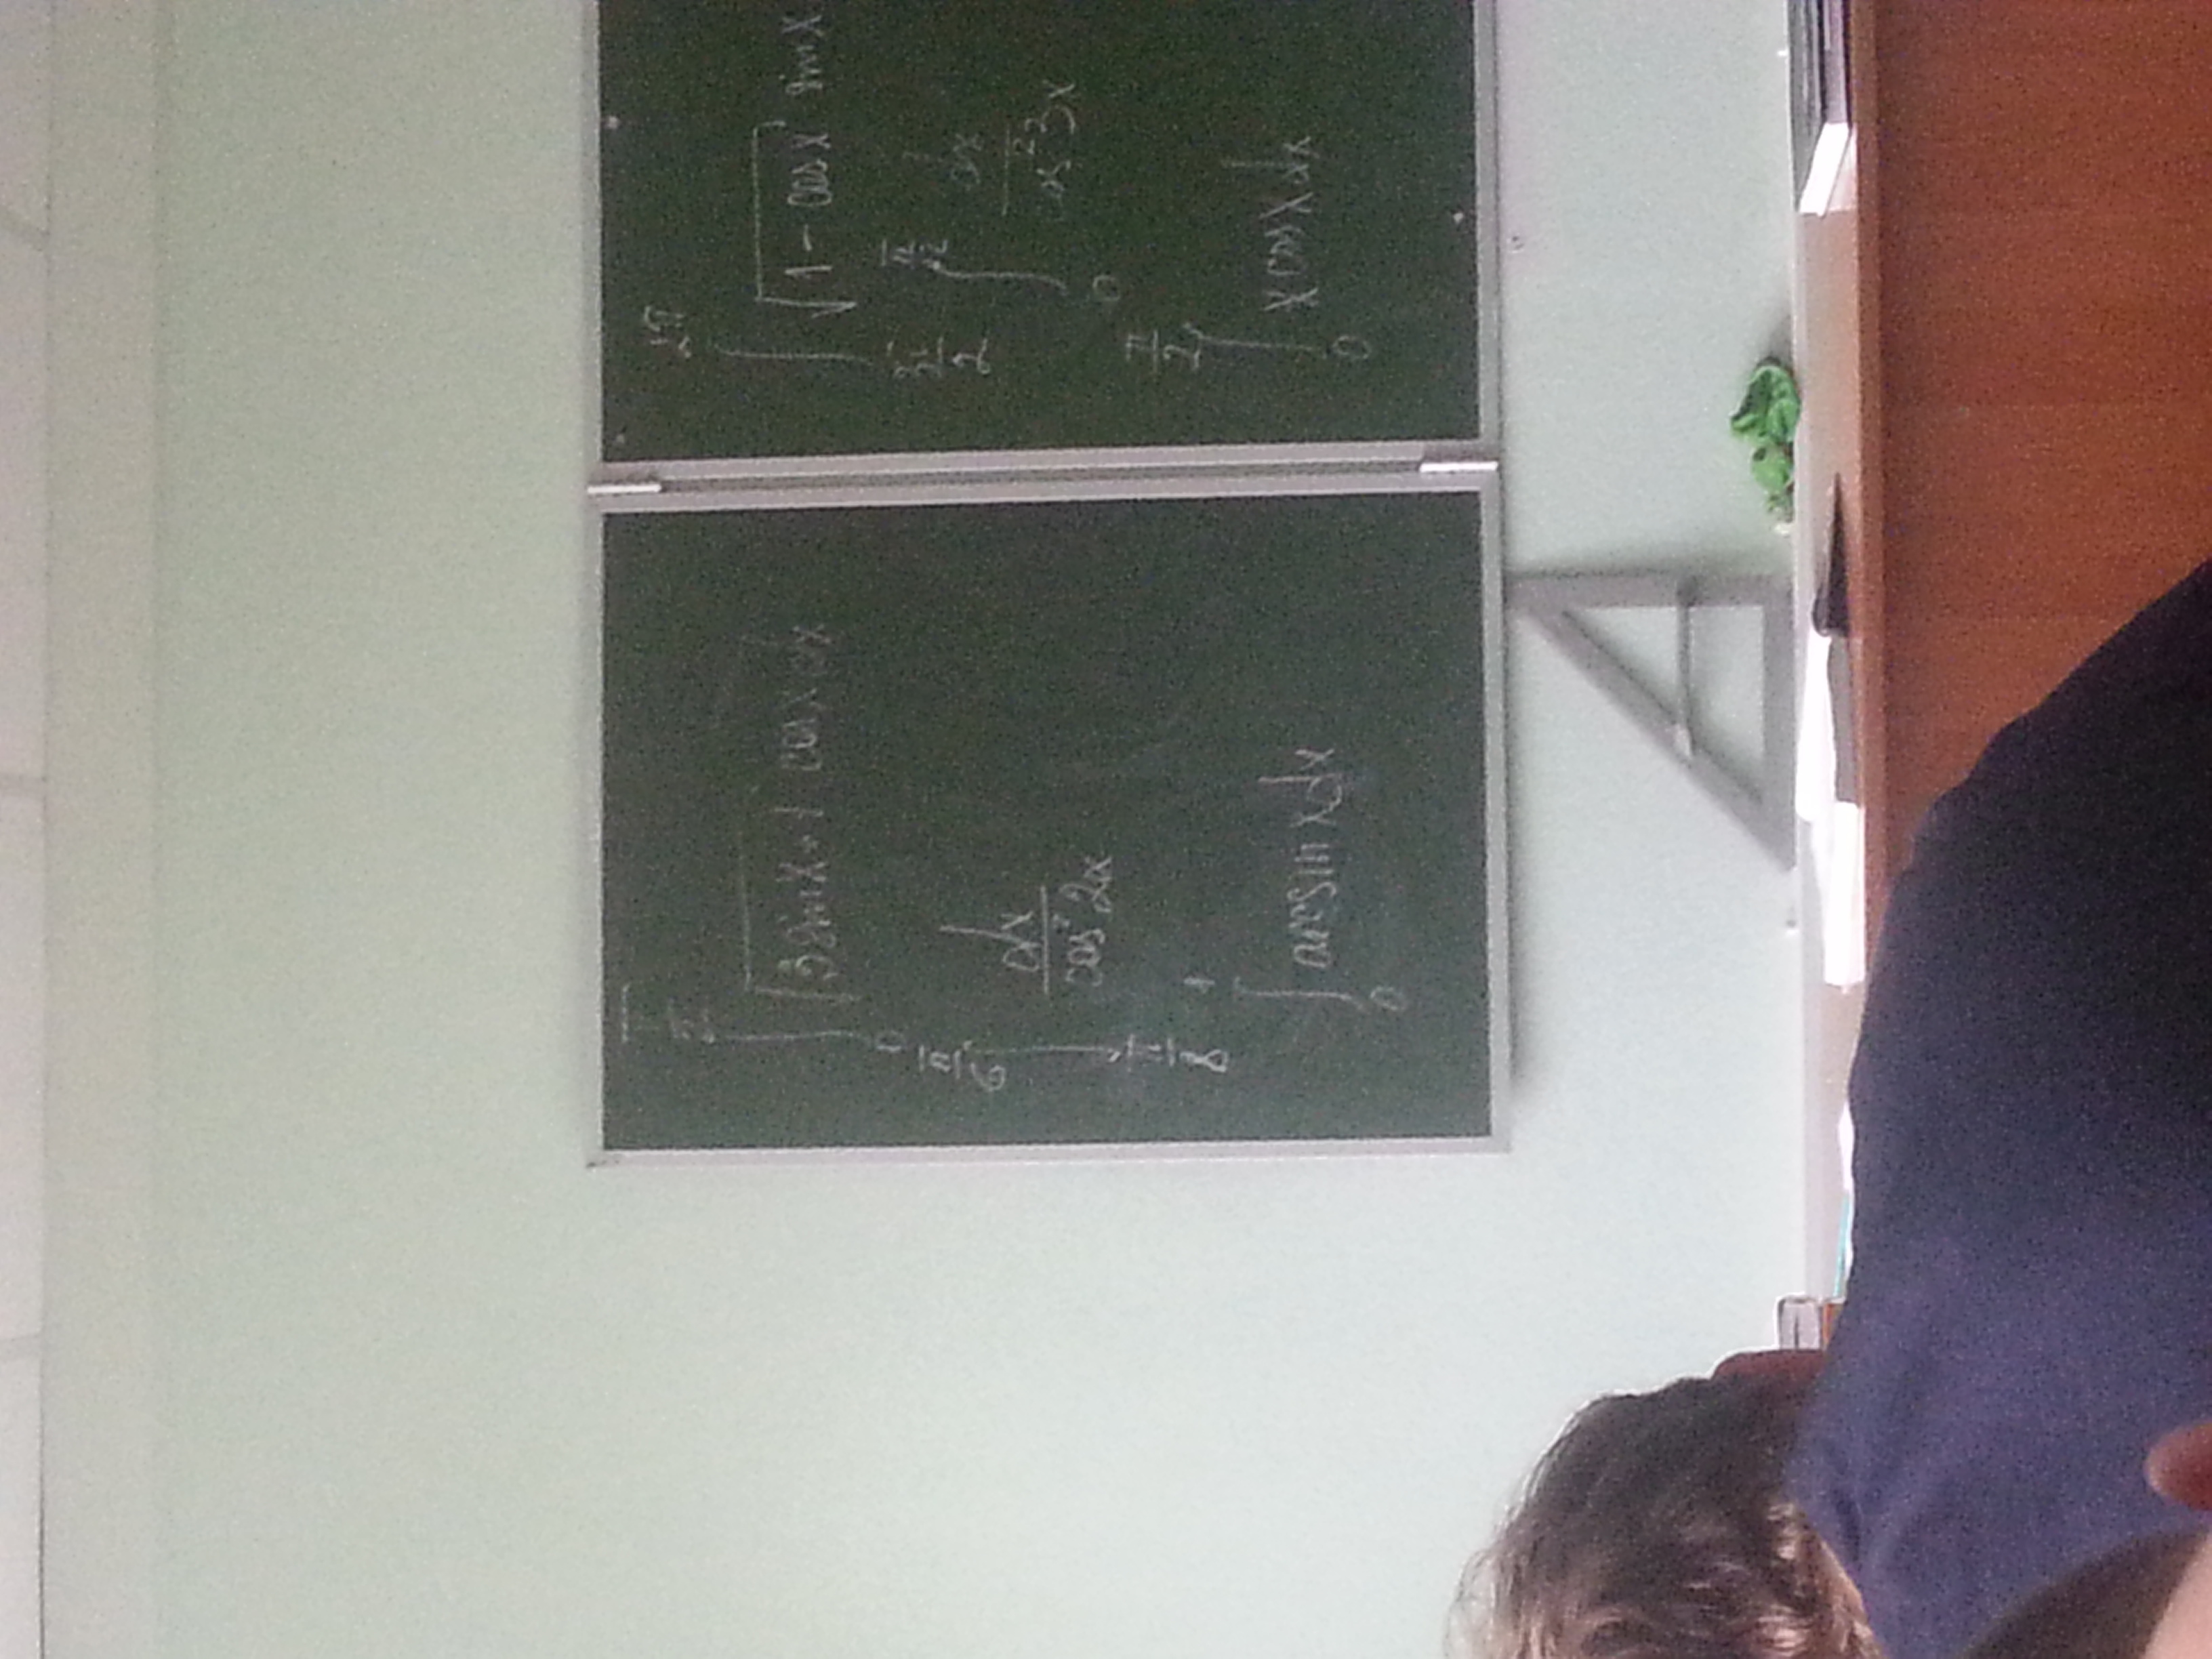 ∫₀^{π/2} √(3sinx+1) cosxdx
∫_{π/8}^{π/6} dx/cos²2x
∫₀¹ arcsinxdx
∫_{π/2}^{2π} √(1-cosx) sinx
∫₀^{π/12} dx/cos²3x
∫₀^{π/2} xcosxdx